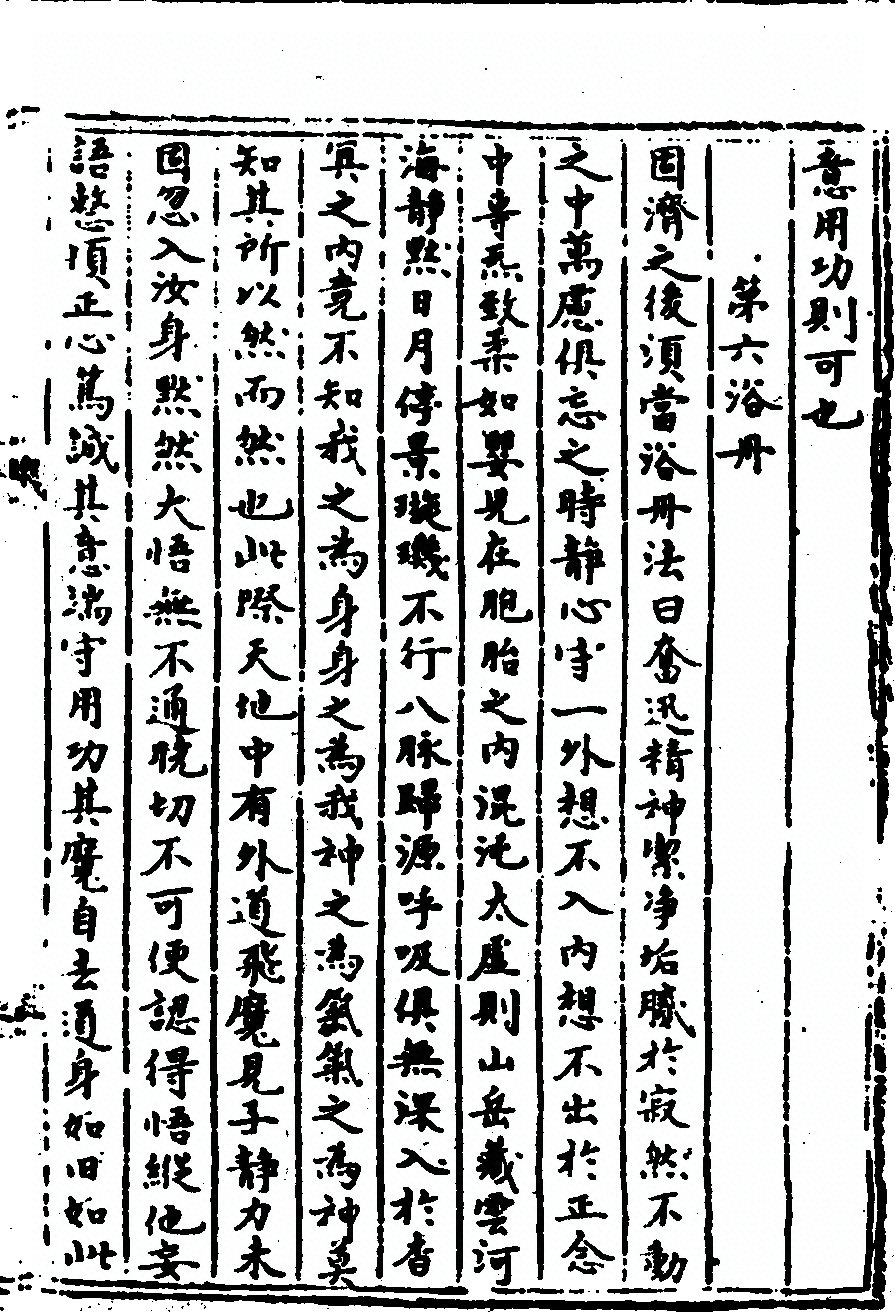 意用功則可也
第六浴丹
固濟之後須當浴丹法曰奮迅精神潔净垢膩於寂然不動
之中萬慮俱忘之時静心守一外想不入内想不出於正念
中專炁致柔如嬰兒在胞胎之内混沌太虛則山岳藏雲河
海静默日月停景璇璣不行八脉歸源呼吸俱無深入於杳
冥之内竟不知我之為身身之為我神之為氣氣之為神莫
知其所以然而然也此際天地中有外道飛魔見子静力未
固忽入汝身默然大悟無不通曉切不可便認得悟縱他妄
語憼項正心篤誠其意湍守用功其魔自去道身如旧如此